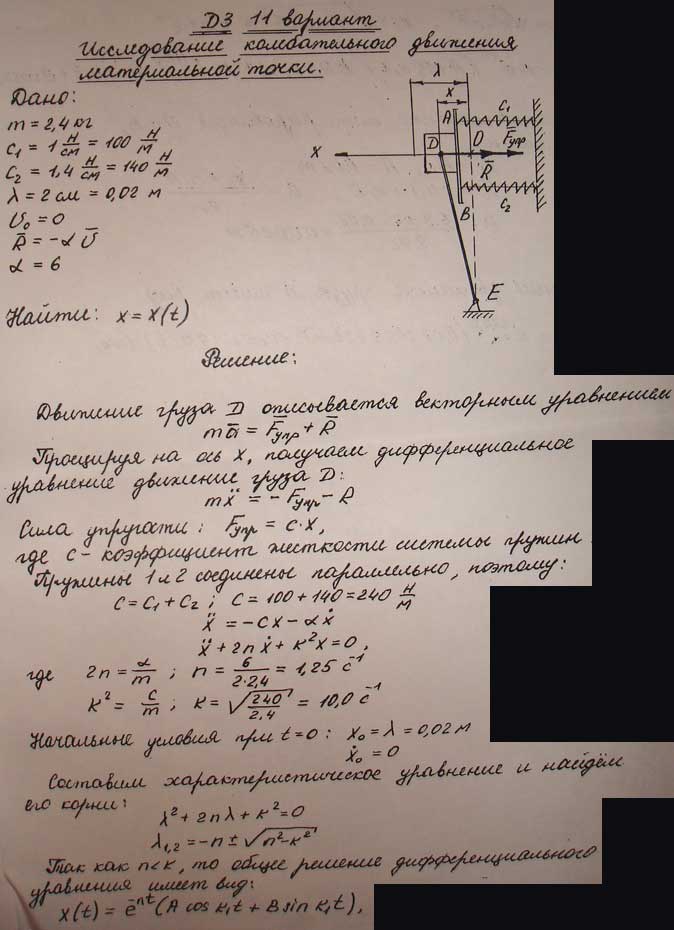 Д3 11 вариант
Исследование колебательного движения
материальной точки.
Дано:
m = 2,4 кг
c₁ = 1 Н/см = 100 Н/м
c₂ = 1,4 Н/см = 140 Н/м
λ = 2 см = 0,02 м
υ₀ = 0
R̄ = -α ῡ
α = 6
λ
x
A
c₁
D
O
F̄упр
X
R̄
B
c₂
E
Найти: x = x(t)
Решение:
Движение груза D описывается векторным уравнением
mā = F̄упр + R̄
Проецируя на ось X, получаем дифференциальное
уравнение движение груза D:
mẍ = - Fупр - R
Сила упругости: Fупр = c·x,
где c - коэффициент жесткости системы пружин.
Пружины 1 и 2 соединены параллельно, поэтому:
C = C₁ + C₂ ; C = 100 + 140 = 240 Н/м
ẍ = -cx - αẋ
ẍ + 2nẋ + к²x = 0,
где 2n = α/m ; n = 6/(2·2,4) = 1,25 c⁻¹
к² = c/m ; к = √(240/2,4) = 10,0 c⁻¹
Начальные условия при t=0 : x₀ = λ = 0,02 м
ẋ₀ = 0
Составим характеристическое уравнение и найдём
его корни:
λ² + 2nλ + к² = 0
λ₁,₂ = -n ± √(n² - к²)
Так как n < к, то общее решение дифференциального
уравнения имеет вид:
x(t) = e⁻ⁿᵗ (A cos к₁t + B sin к₁t),